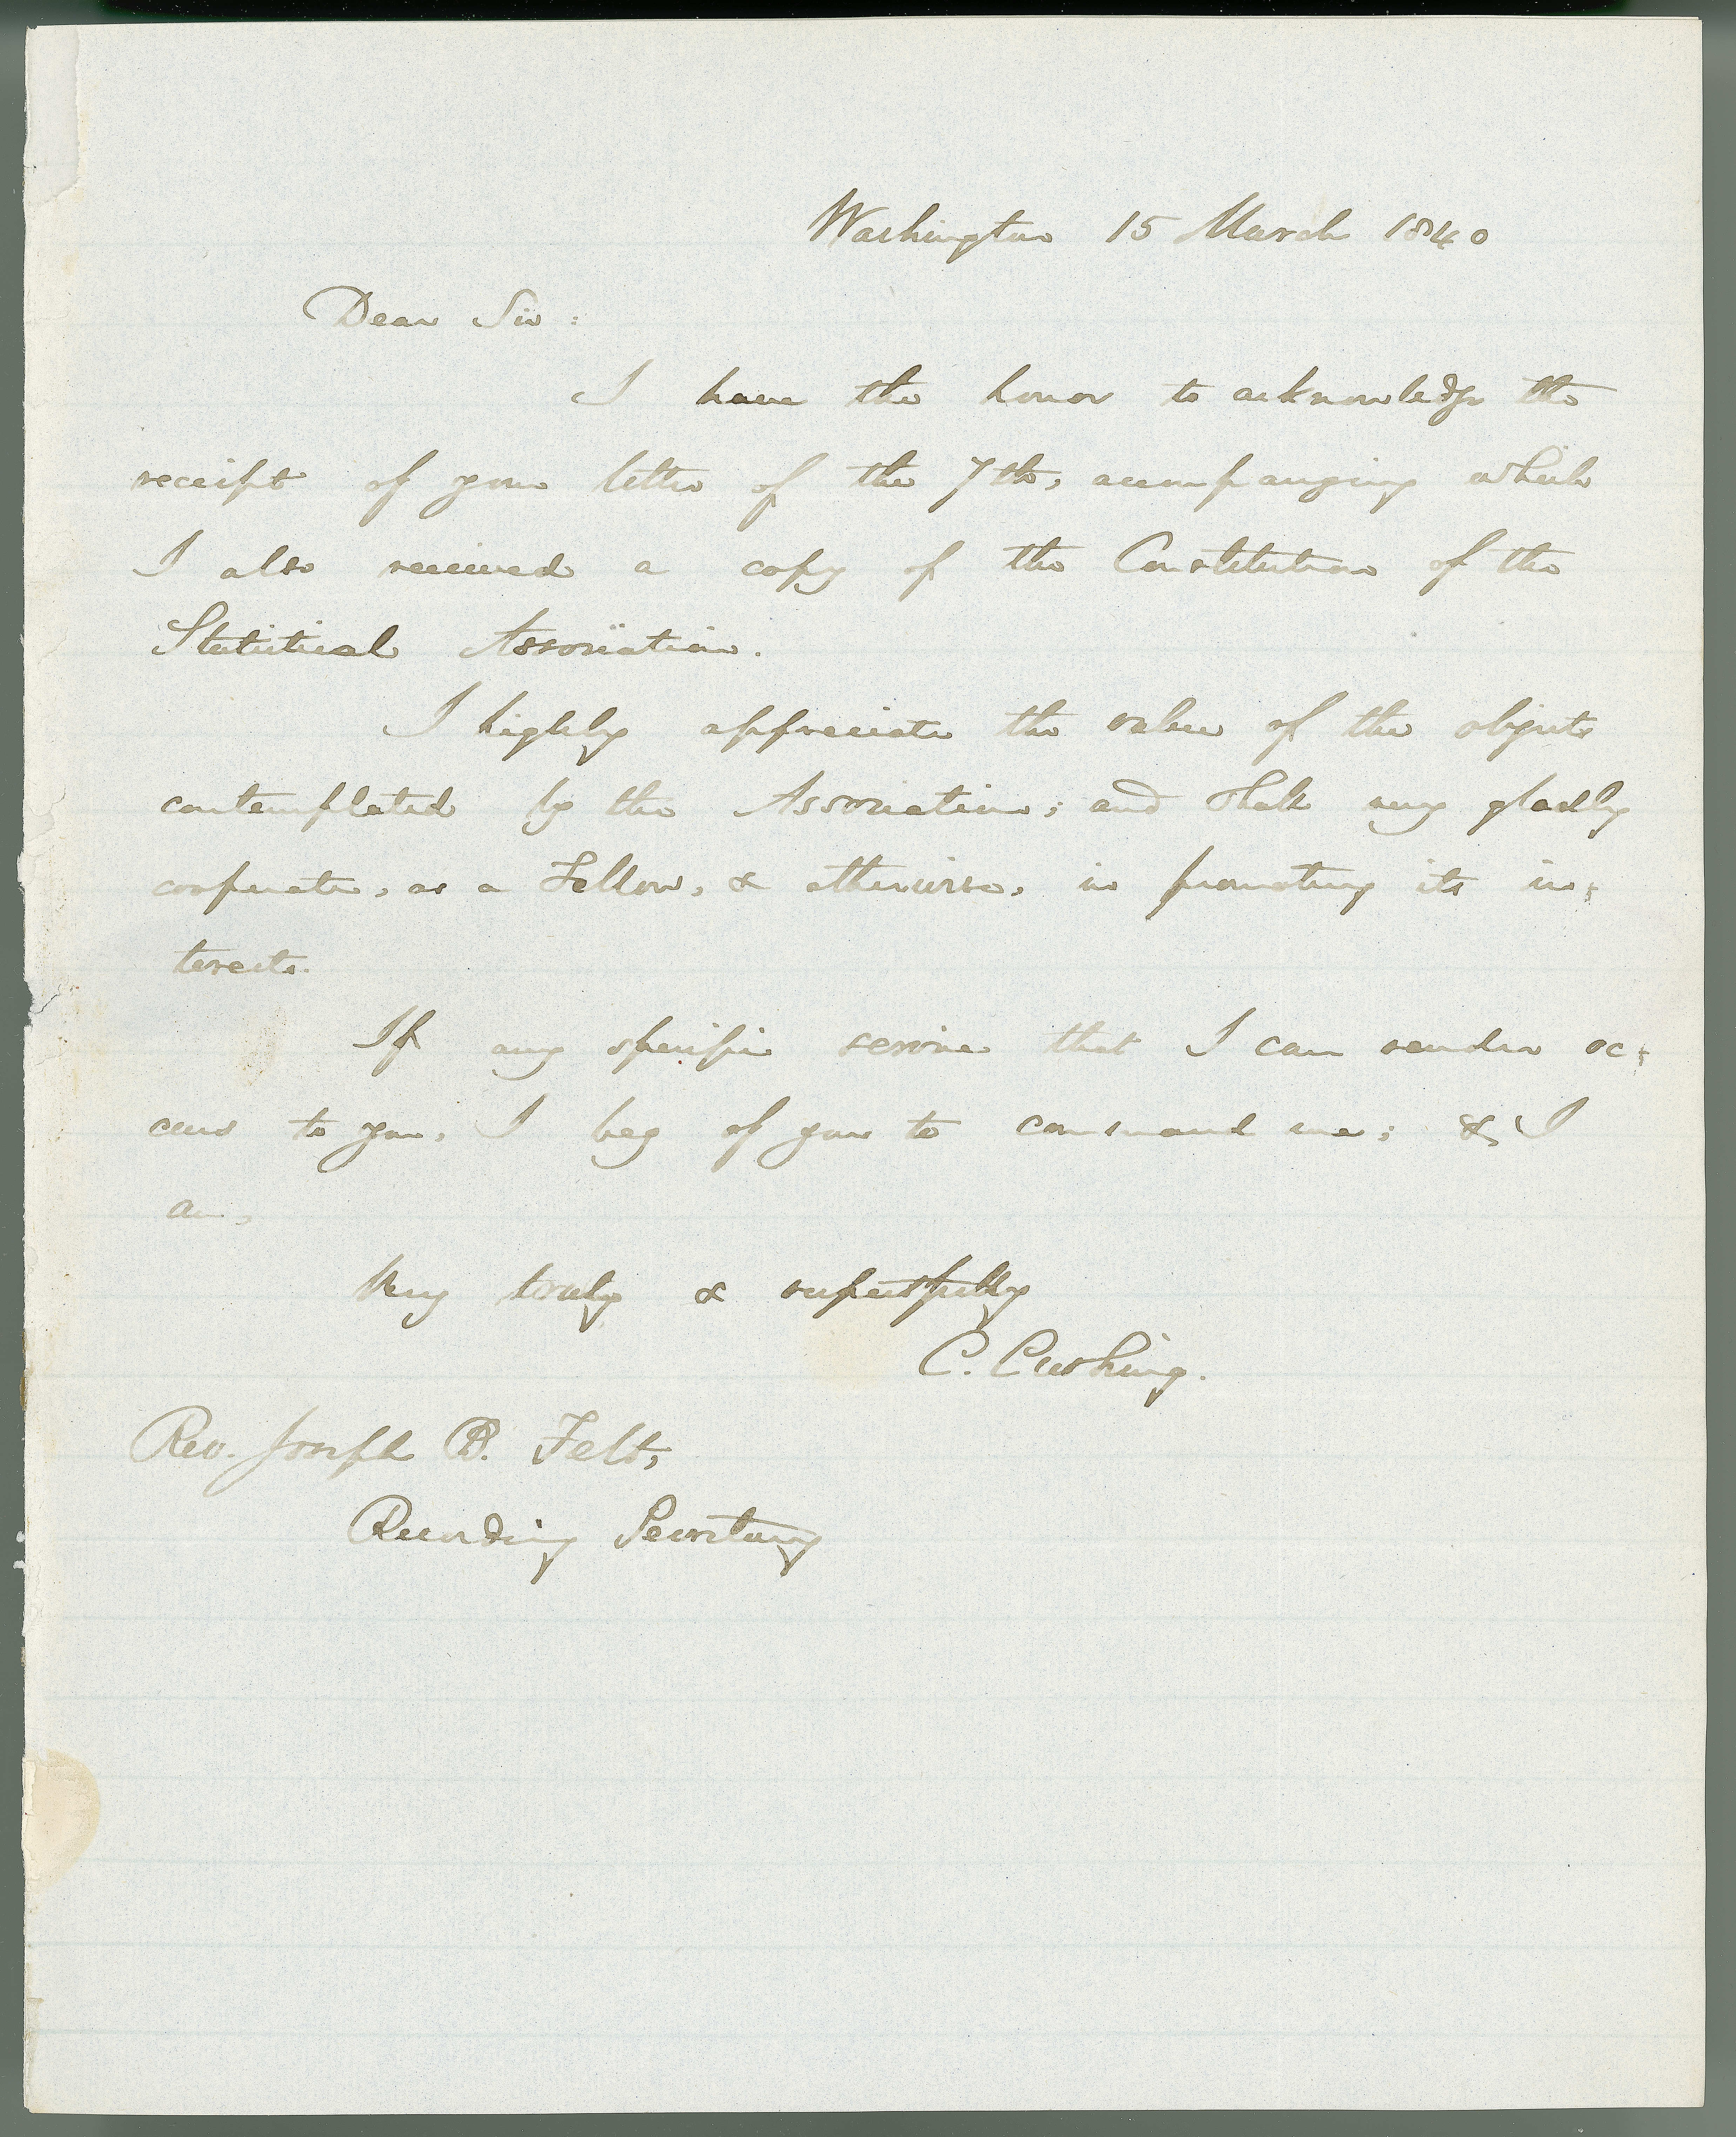 Washington 15 March 1840
Dear Sir:
I have the honor to acknowledge the
receipt of your letter of the 7th, accompanying which
I also received a copy of the Constitution of the
Statistical Association.
I highly appreciate the value of the objects
contemplated by the Association; and shall very gladly
cooperate, as a Fellow, & otherwise, in promoting its in:
terests.
If any specific service that I can render oc:
curs to you, I beg of you to command me; & I
am,
Very truly & respectfully
C. Cushing.
Rev. Joseph B. Felt,
Recording Secretary